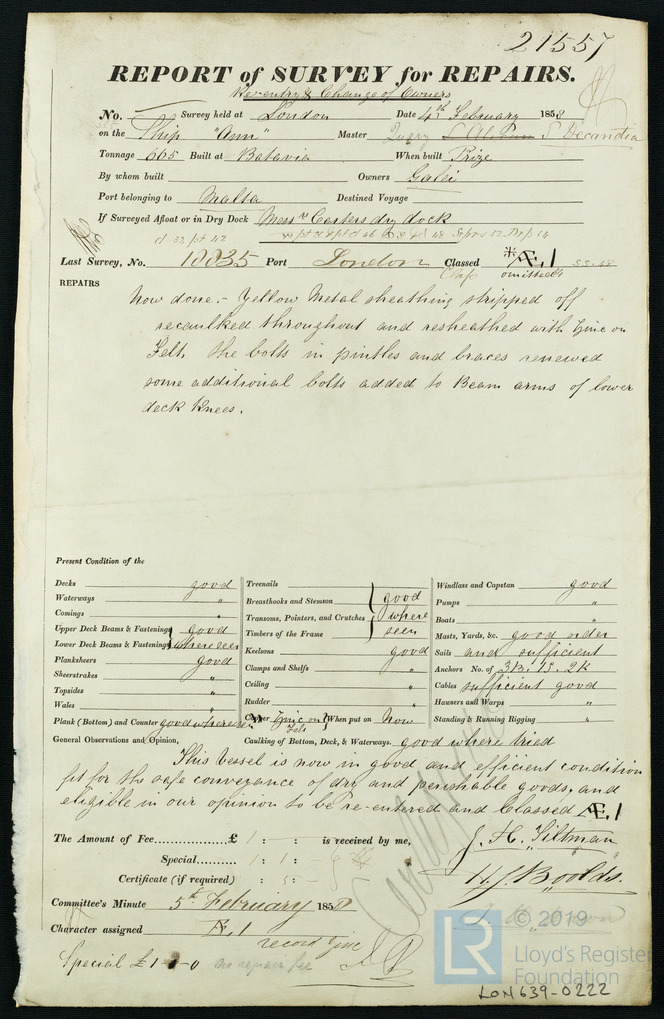 21557
REPORT of SURVEY for REPAIRS.
Re-entry & Change of Owners
No. Survey held at London Date 4th February 1858
on the Ship "Ann" Master Query S Decandia
Tonnage 665 Built at Batavia When built Prize
By whom built Owners Galei
Port belonging to Malta Destined Voyage
If Surveyed Afloat or in Dry Dock Messrs Cesters dry dock
Last Survey, No. 18835 Port London Classed Æ,1 SS.48
Class omitted
REPAIRS
Now done :- Yellow Metal sheathing stripped off
recaulked throughout and resheathed with Zinc on
Felt. The bolts in pintles and braces renewed
some additional bolts added to Beam arms of lower
deck knees.
Present Condition of the
Decks good Treenails Windlass and Capstan good
Waterways " Breasthooks and Stemson good Pumps "
Comings " Transoms, Pointers, and Crutches where Boats "
Upper Deck Beams & Fastenings good Timbers of the Frame seen Masts, Yards, &c. good order
Lower Deck Beams & Fastenings where seen Keelsons good Sails and sufficient
Planksheers good Clamps and Shelfs " Anchors No. of 3B. 1S. 2K
Sheerstrakes " Ceiling " Cables sufficient good
Topsides " Rudder " Hawsers and Warps "
Wales " Copper Zinc on Felt When put on Now Standing & Running Rigging "
Plank (Bottom) and Counter good where seen
General Observations and Opinion, Caulking of Bottom, Deck, & Waterways. good where tried
This Vessel is now in good and efficient condition
fit for the safe conveyance of dry and perishable goods, and
eligible in our opinion to be re-entered and Classed Æ,1
The Amount of Fee £ 1 : : is received by me, J. H. Tiltman
Special 1 : 1 : -
Certificate (if required) : 5 : - H J Boolds.
Committee's Minute 5th February 1858
Character assigned Æ,1
record Zinc
Special £1-0 no repair fee
© 2019
LR
Lloyd's Register
Foundation
LON639-0222